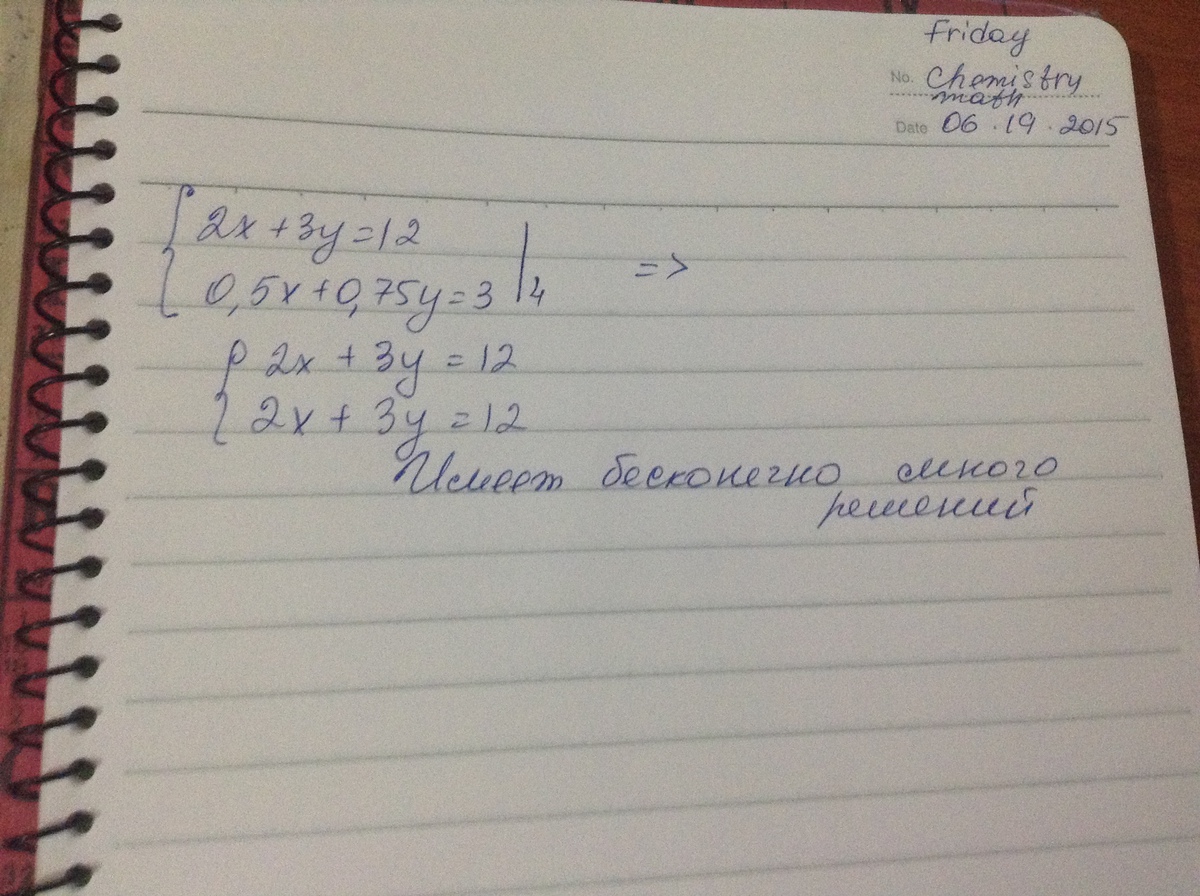 Friday
No. Chemistry
math
Date 06.19.2015
{ 2x + 3y = 12
0,5x + 0,75y = 3 | 4 =>
{ 2x + 3y = 12
2x + 3y = 12
Имеет бесконечно много
решений